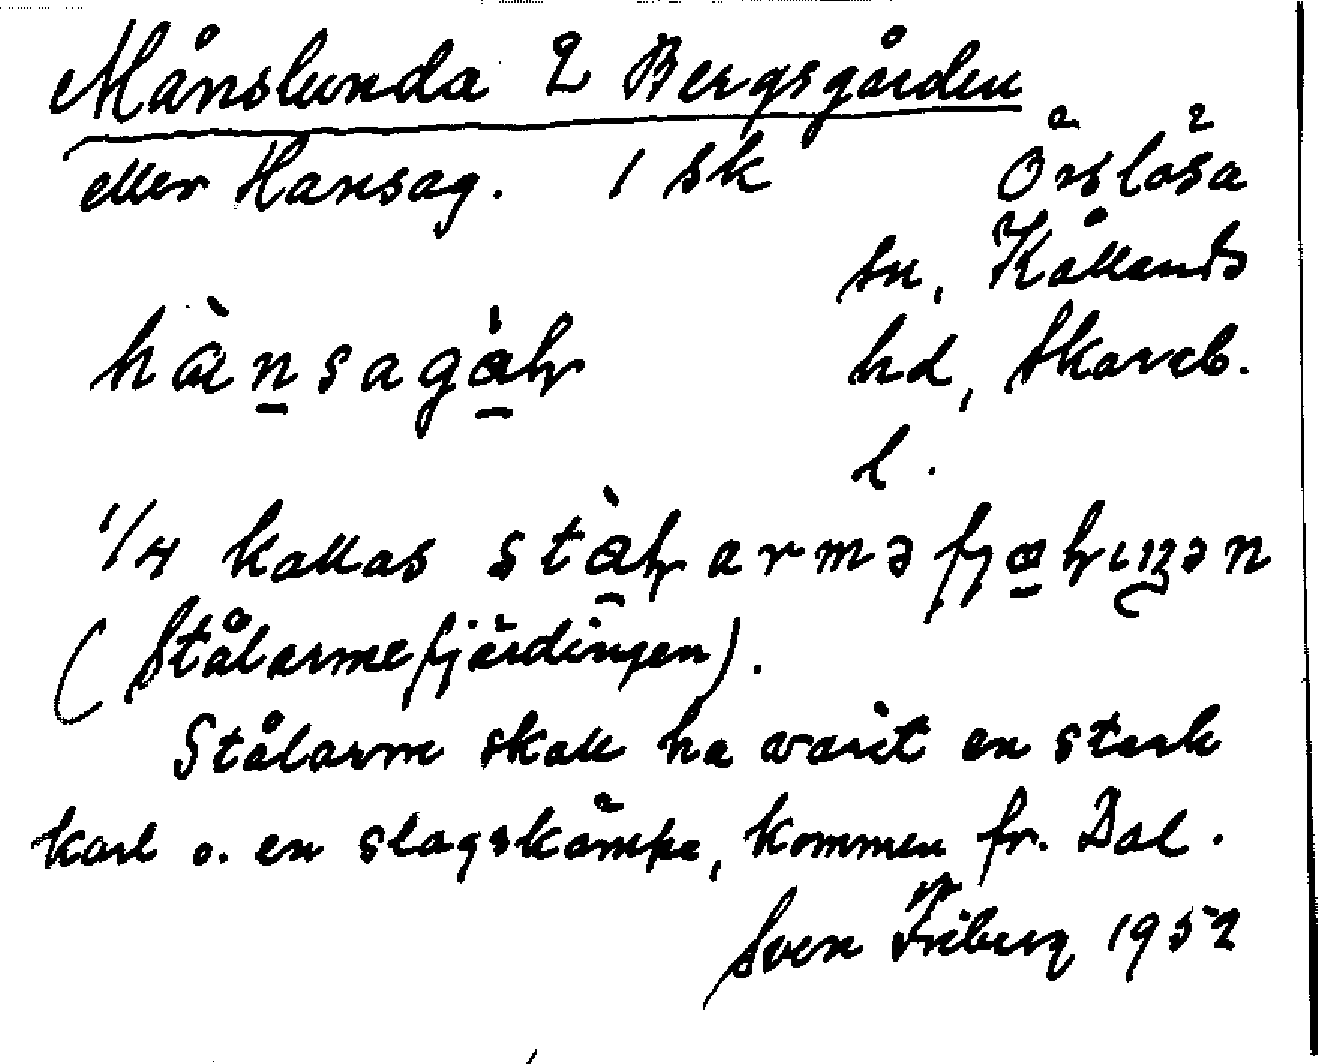 Månslunda 2 Bergsgården
eller Hansag. 1 sk Örslösa
sn, Kållands
hd, Skarab.
l.
1/4 kallas
(Stålarmefjärdingen).
Stålarm skall ha varit en stark
karl o. en slagskämpe, kommen fr. Dal.
Sven Friberg 1952